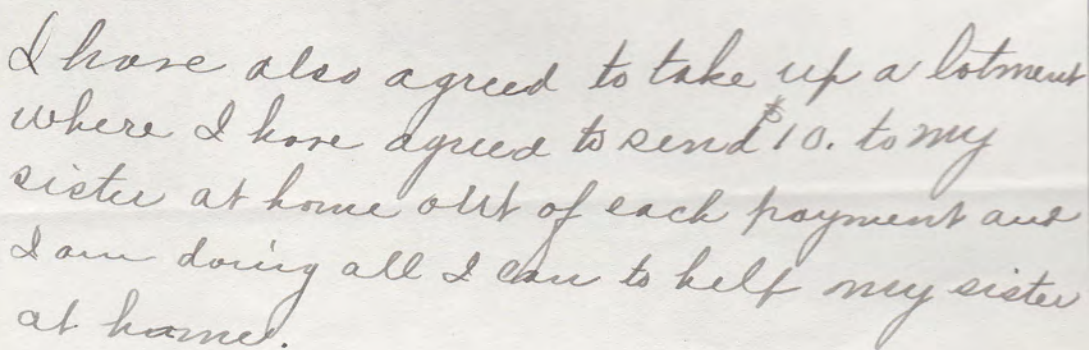 I have also agreed to take up a lotment
where I have agreed to send $10. to my
sister at home out of each payment and
I am doing all I can to help my sister
at home.